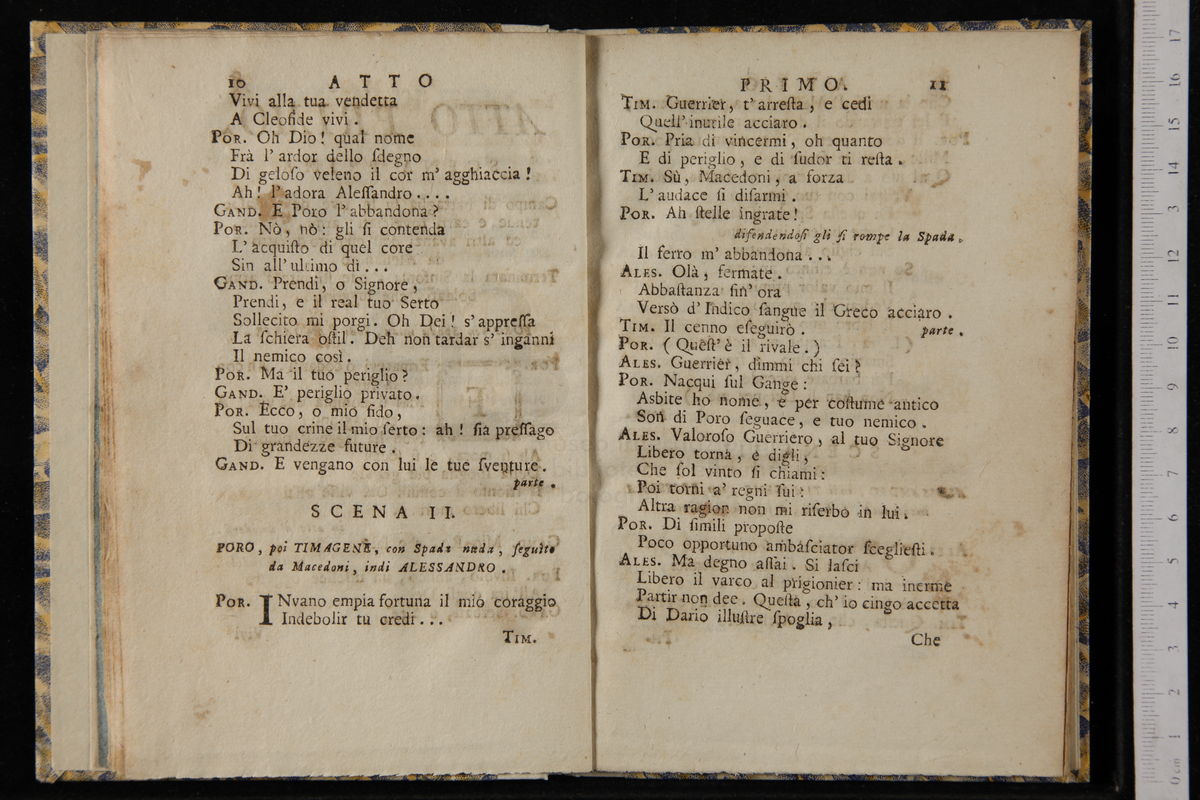 10 ATTO
Vivi alla tua vendetta
A Cleofide vivi.
POR. Oh Dio! qual nome
Frà l'ardor dello ſdegno
Di geloſo veleno il cor m'agghiaccia!
Ah! l'adora Aleſſandro....
GAND. E Poro l'abbandona?
POR. Nò, nò: gli ſi contenda
L'acquiſto di quel core
Sin all'ultimo dì...
GAND. Prendi, o Signore,
Prendi, e il real tuo Serto
Sollecito mi porgi. Oh Dei! s'appreſſa
La ſchiera oſtil. Deh non tardar s'inganni
Il nemico così.
POR. Ma il tuo periglio?
GAND. E' periglio privato.
POR. Ecco, o mio fido,
Sul tuo crine il mio ſerto: ah! ſia preſſago
Di grandezze future.
GAND. E vengano con lui le tue ſventure.
parte.
SCENA II.
PORO, poi TIMAGENE, con Spada nuda, ſeguito
da Macedoni, indi ALESSANDRO.
POR. INvano empia fortuna il mio coraggio
Indebolir tu credi...
TIM.
PRIMO. 11
TIM. Guerrier, t'arreſta, e cedi
Quell'inutile acciaro.
POR. Pria di vincermi, oh quanto
E di periglio, e di ſudor ti reſta.
TIM. Sù, Macedoni, a forza
L'audace ſi diſarmi.
POR. Ah ſtelle ingrate!
difendendoſi gli ſi rompe la Spada.
Il ferro m'abbandona...
ALES. Olà, fermate.
Abbaſtanza fin'ora
Versò d'Indico ſangue il Greco acciaro.
TIM. Il cenno eſeguirò. parte.
POR. (Queſt'è il rivale.)
ALES. Guerrier, dimmi chi ſei?
POR. Nacqui ſul Gange:
Asbite ho nome, e per coſtume antico
Son di Poro ſeguace, e tuo nemico.
ALES. Valoroſo Guerriero, al tuo Signore
Libero torna, e digli,
Che ſol vinto ſi chiami:
Poi torni a' regni ſui:
Altra ragion non mi riſerbo in lui.
POR. Di ſimili propoſte
Poco opportuno ambaſciator ſceglieſti.
ALES. Ma degno aſſai. Si laſci
Libero il varco al prigionier: ma inerme
Partir non dee. Queſta, ch'io cingo accetta
Di Dario illuſtre ſpoglia,
Che
0 cm 1 2 3 4 5 6 7 8 9 10 11 12 13 14 15 16 17